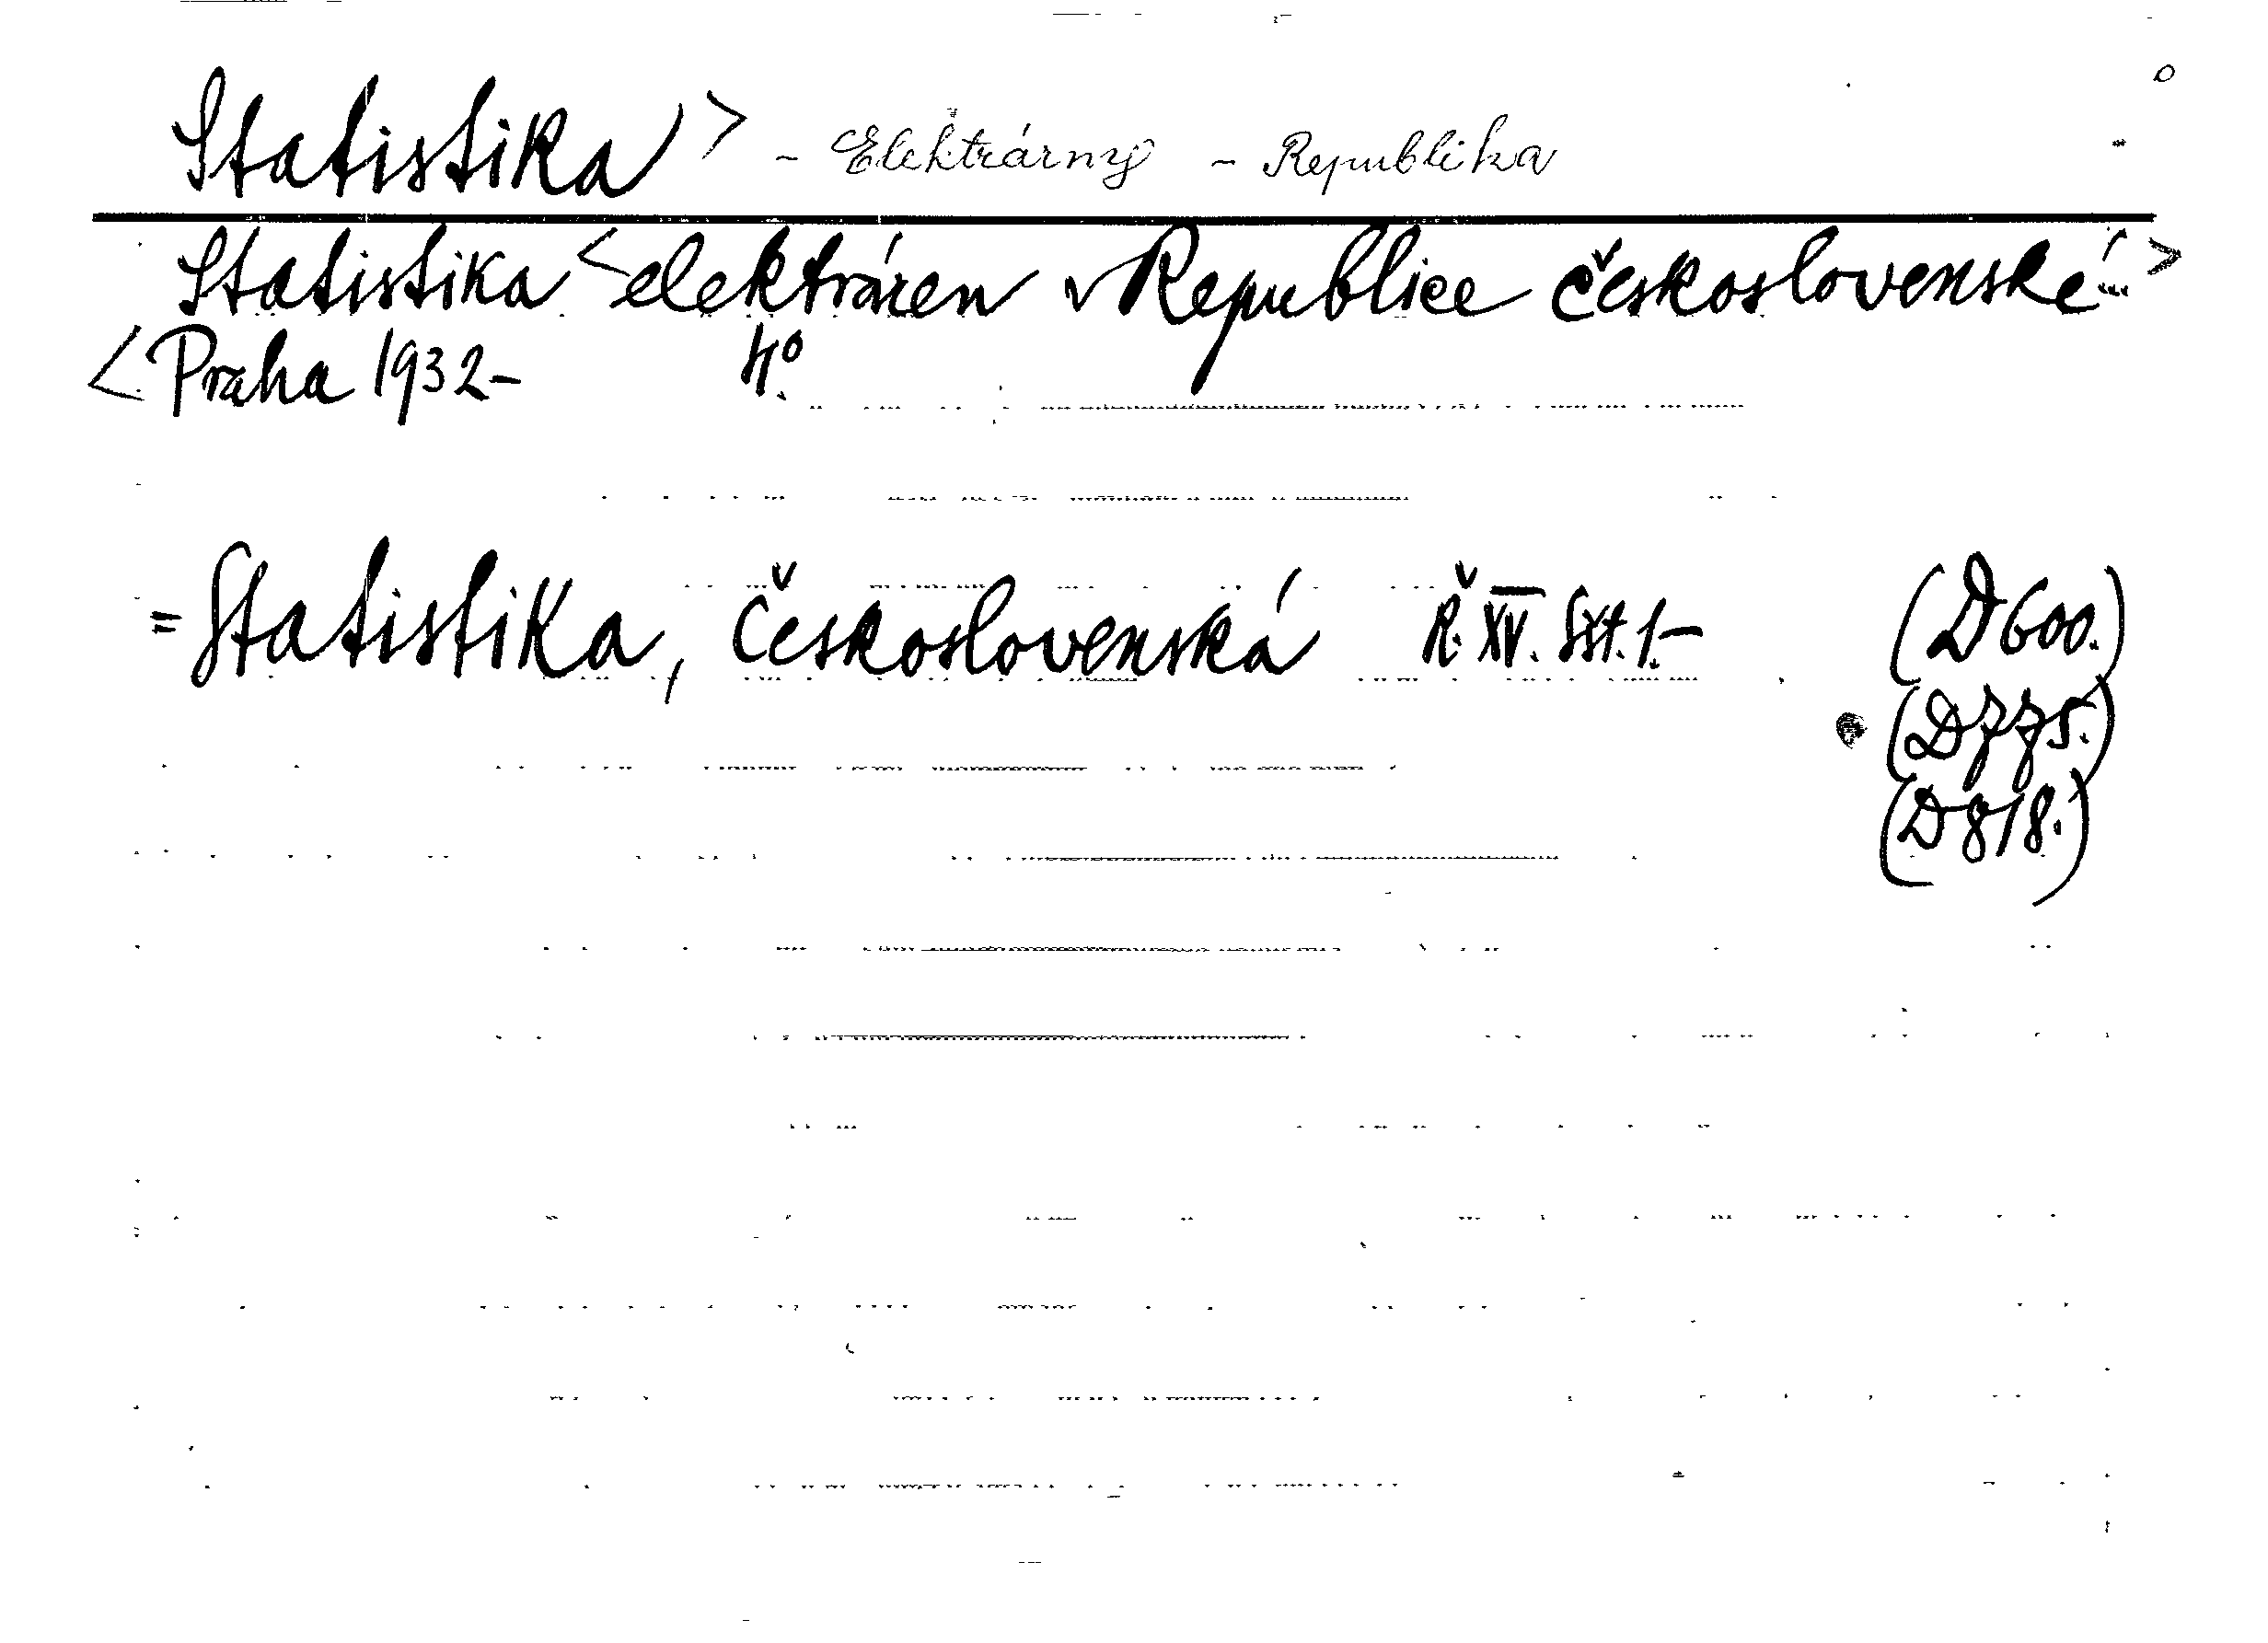 Statistika > - Elektrárny - Republika
Statistika < elektráren v Republice československé... >
< Praha 1932- 4°.
= Statistika, Československá Ř. XV. Seš. 1.- (D 600.)
(D 775.)
(D 818.)